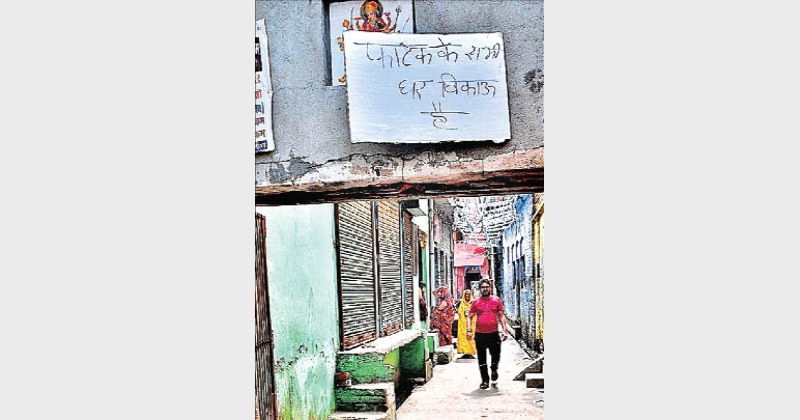 फाटक के सभी
घर बिकाऊ
है